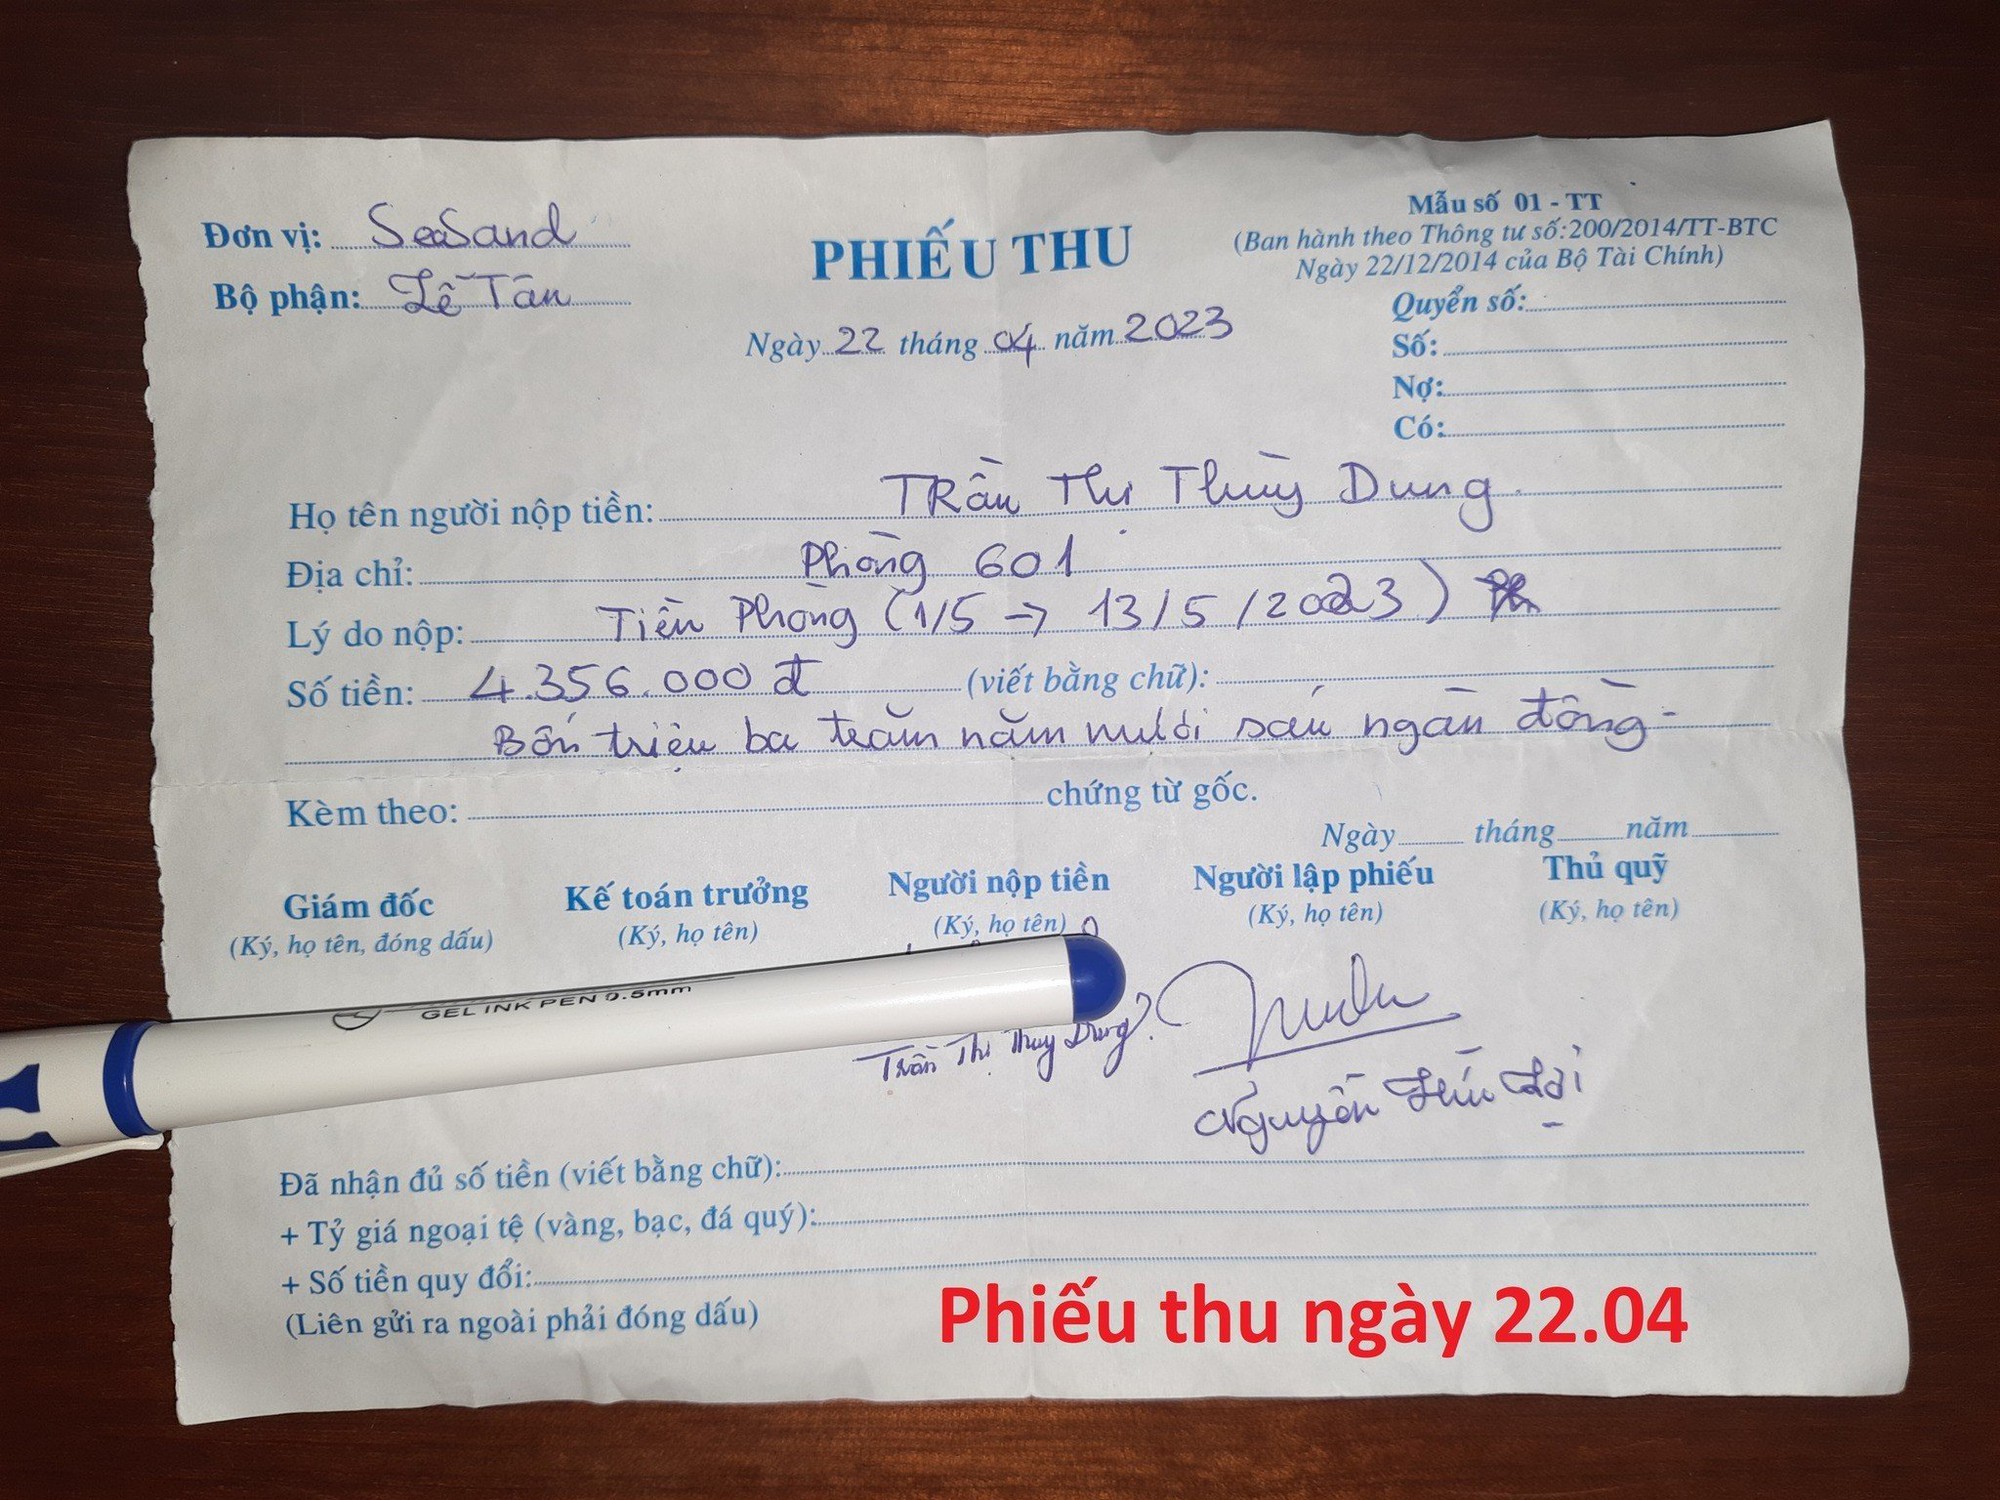 Đơn vị: SeaSand
Bộ phận: Lễ Tân
PHIẾU THU
Ngày 22 tháng 04 năm 2023
Mẫu số 01 - TT
(Ban hành theo Thông tư số:200/2014/TT-BTC
Ngày 22/12/2014 của Bộ Tài Chính)
Quyển số:
Số:
Nợ:
Có:
Họ tên người nộp tiền: TRần Thị Thùy Dung
Địa chỉ: Phòng 601
Lý do nộp: Tiền Phòng (1/5 → 13/5/2023)
Số tiền: 4.356.000 đ (viết bằng chữ):
Bốn triệu ba trăm năm mươi sáu ngàn đồng -
Kèm theo: chứng từ gốc.
Ngày tháng năm
Giám đốc Kế toán trưởng Người nộp tiền Người lập phiếu Thủ quỹ
(Ký, họ tên, đóng dấu) (Ký, họ tên) (Ký, họ tên) (Ký, họ tên) (Ký, họ tên)
GEL INK PEN 0.5mm
Trần Thị Thuỳ Dung
Nguyễn
Đã nhận đủ số tiền (viết bằng chữ):
+ Tỷ giá ngoại tệ (vàng, bạc, đá quý):
+ Số tiền quy đổi:
(Liên gửi ra ngoài phải đóng dấu)
Phiếu thu ngày 22.04